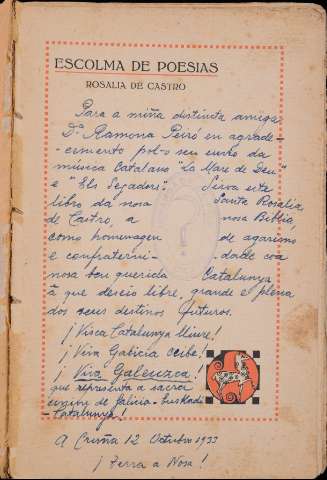 ESCOLMA DE POESIAS
ROSALIA DE CASTRO
Para a miña distinta amiga
Dª Ramona Peiró en agrade-
cimento pol-o seu envio da
música Catalana "La Mare de Deu"
e "Els Segadors". Sirva este
libro da nosa Santa Rosalia
de Castro, a nosa Biblia,
como homenagen de agarimo
e confraterni- dade coa
nosa ben querida Catalunya
á que deseio libre, grande e plena
dos seus destinos futuros.
¡Visca Catalunya lliure!
¡Viva Galicia ceibe!
¡Viva Galeuzca!
que representa a sacra
de Galicia-Euskadi-
Catalunya!
A Cruña 12 Octubre 1933
¡Terra a Nosa!